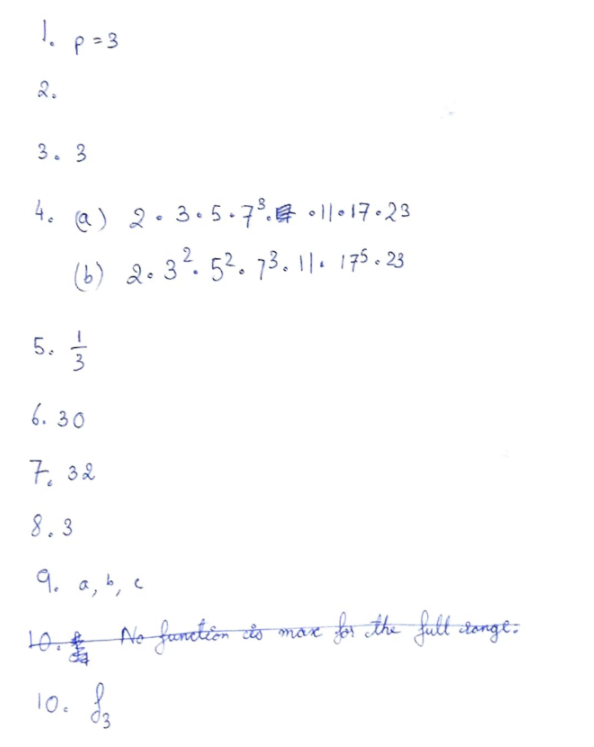 1. p = 3
2.
3. 3
4. (a) 2 · 3 · 5 · 7³ · · 11 · 17 · 23
(b) 2 · 3² · 5² · 7³ · 11 · 17⁵ · 23
5. 1/3
6. 30
7. 32
8. 3
9. a, b, c
10. No function is max for the full range.
10. f₃